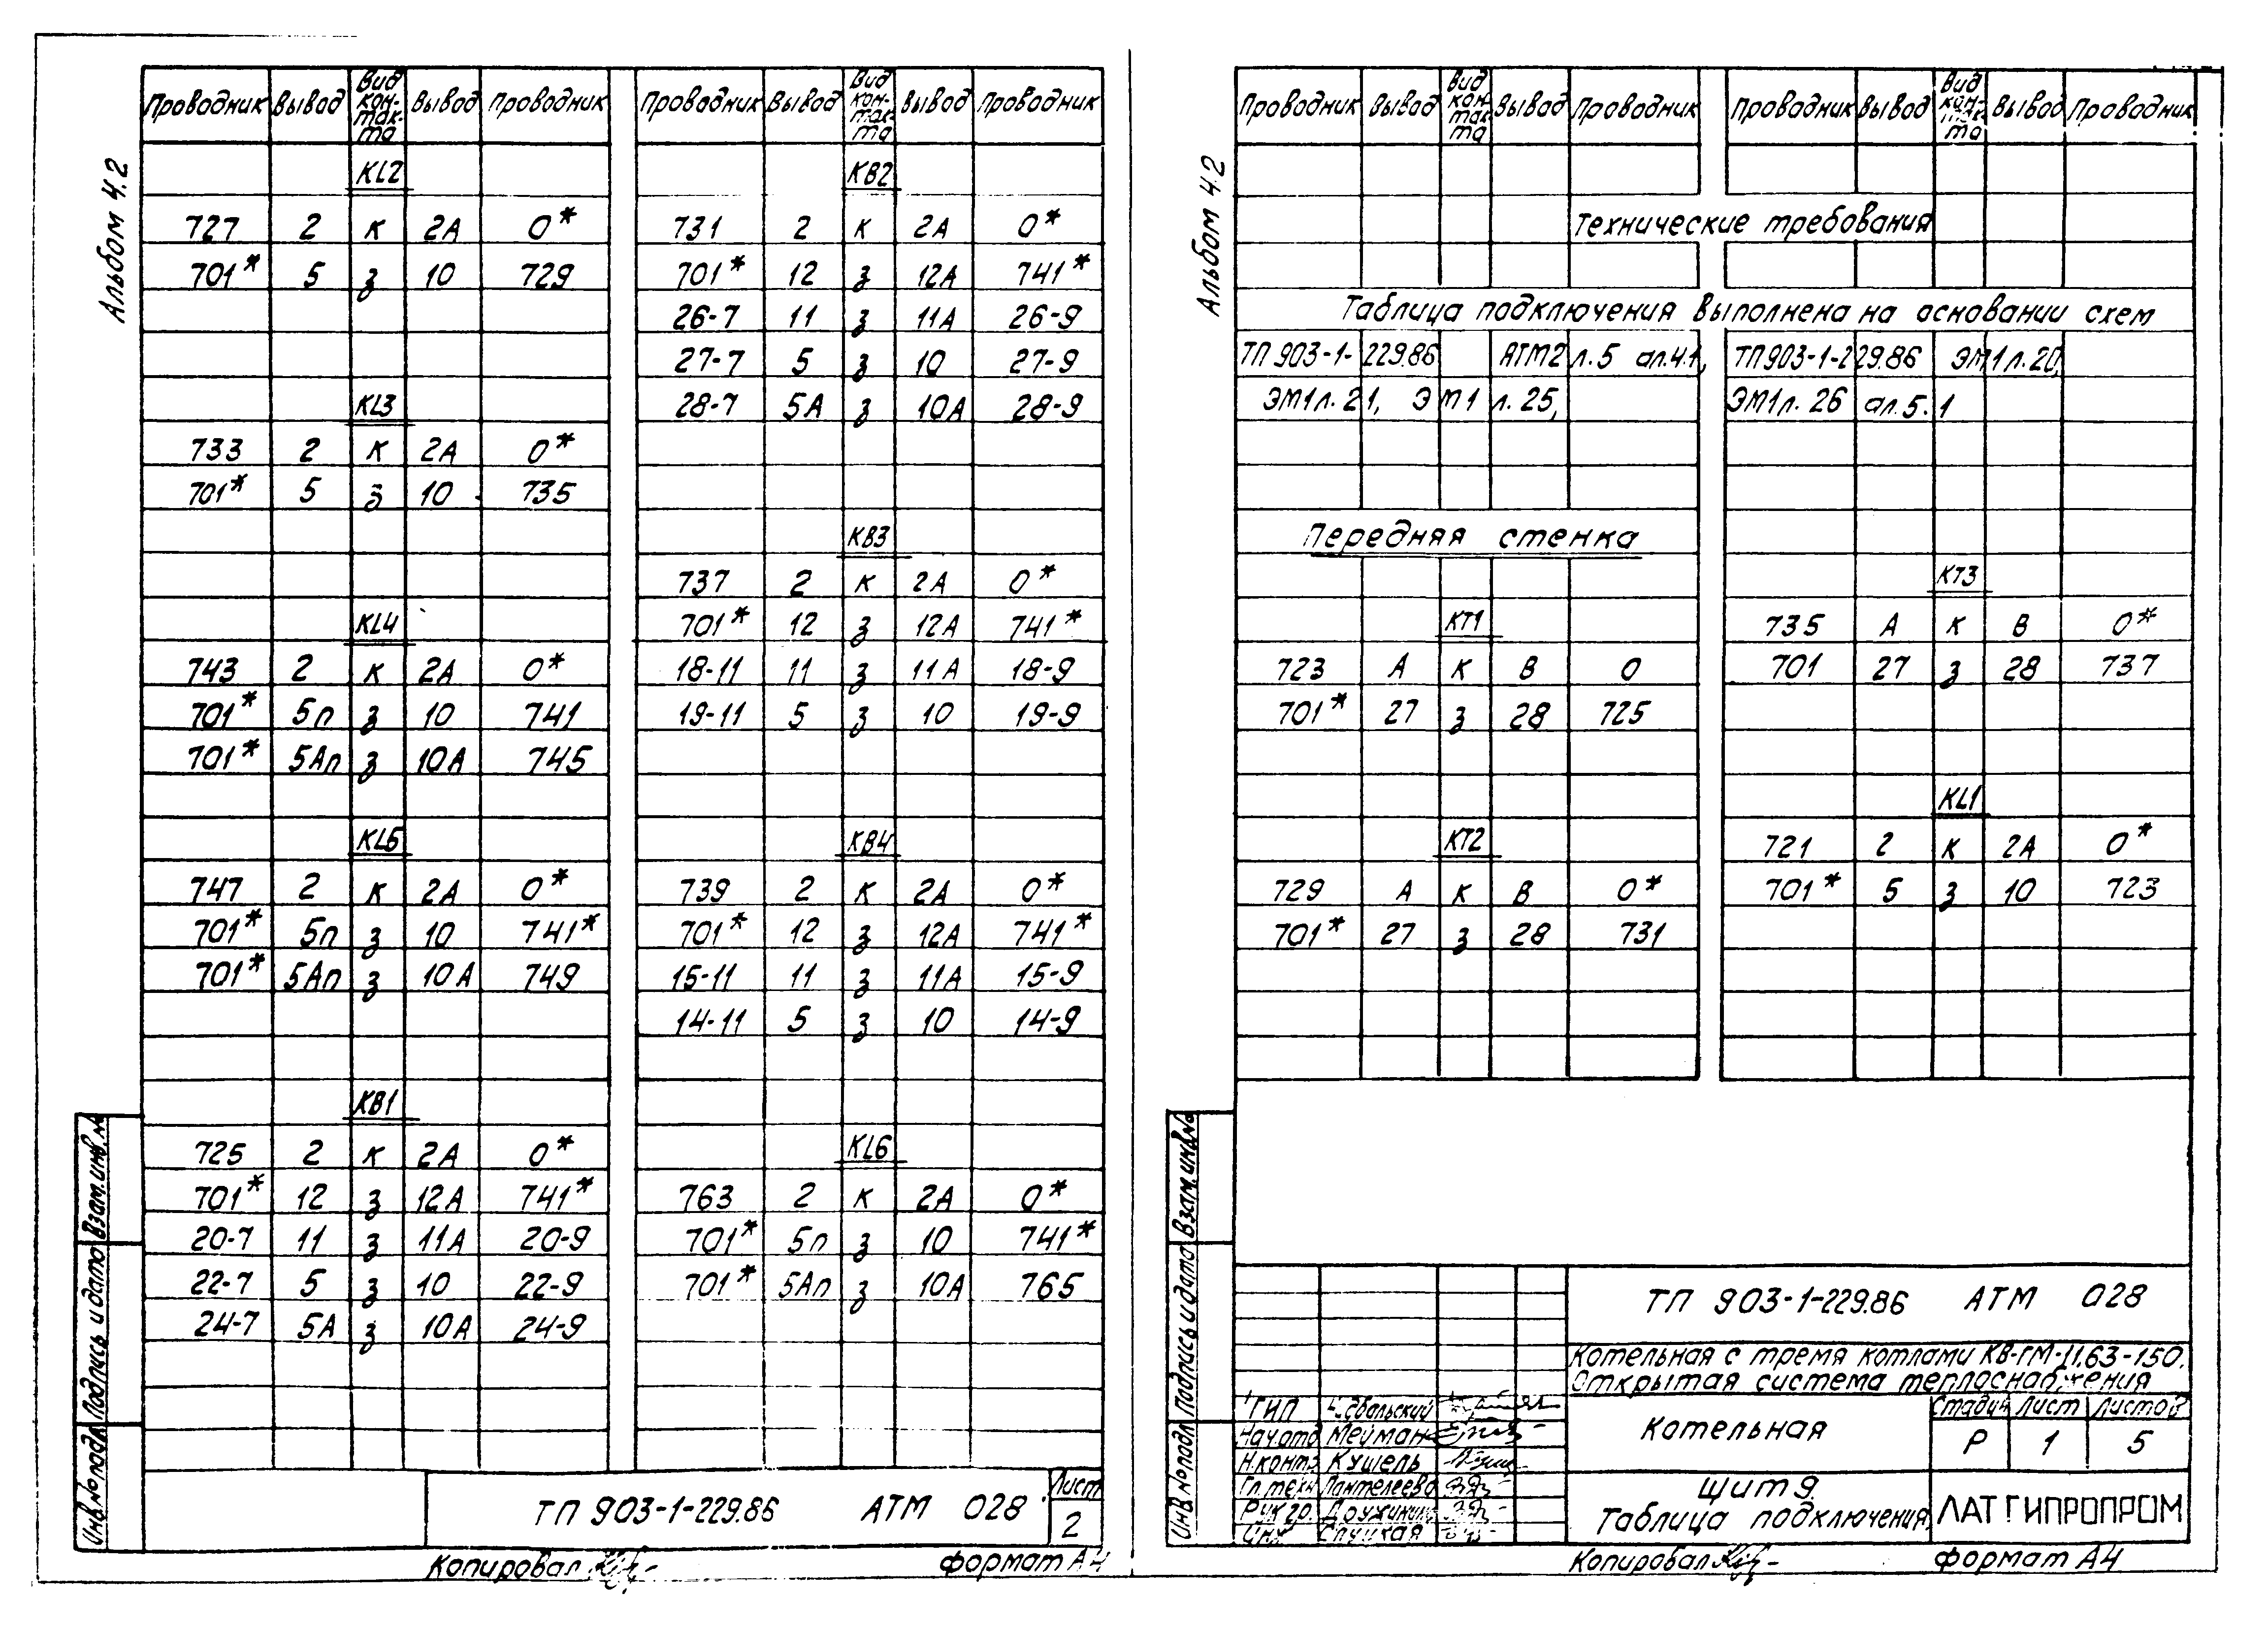 Альбом 4.2
Проводник Вывод Вид контакта Вывод Проводник
KL2
727 2 к 2А 0*
701* 5 з 10 729
KL3
733 2 к 2А 0*
701* 5 з 10 735
KL4
743 2 к 2А 0*
701* 5п з 10 741
701* 5Ап з 10А 745
KL5
747 2 к 2А 0*
701* 5п з 10 741*
701* 5Ап з 10А 749
КВ1
725 2 к 2А 0*
701* 12 з 12А 741*
20-7 11 з 11А 20-9
22-7 5 з 10 22-9
24-7 5А з 10А 24-9
Проводник Вывод Вид контакта Вывод Проводник
КВ2
731 2 к 2А 0*
701* 12 з 12А 741*
26-7 11 з 11А 26-9
27-7 5 з 10 27-9
28-7 5А з 10А 28-9
КВ3
737 2 к 2А 0*
701* 12 з 12А 741*
18-11 11 з 11А 18-9
19-11 5 з 10 19-9
КВ4
739 2 к 2А 0*
701* 12 з 12А 741*
15-11 11 з 11А 15-9
14-11 5 з 10 14-9
KL6
763 2 к 2А 0*
701* 5п з 10 741*
701* 5Ап з 10А 765
Инв.№подл. Подпись и дата Взам.инв.№
ТП 903-1-229.86 АТМ 028
Лист
2
Копировал
формат А4
Альбом 4.2
Проводник Вывод Вид контакта Вывод Проводник
Проводник Вывод Вид контакта Вывод Проводник
Технические требования
Таблица подключения выполнена на основании схем
ТП 903-1-229.86 АТМ2 л.5 ал.4.1, ТП 903-1-229.86 ЭМ1 л.20,
ЭМ1 л.21, ЭМ1 л.25, ЭМ1 л.26 ал.5.1
Передняя стенка
КТ1
723 А к В 0
701* 27 з 28 725
КТ2
729 А к В 0*
701* 27 з 28 731
КТ3
735 А к В 0*
701 27 з 28 737
KL1
721 2 к 2А 0*
701* 5 з 10 723
Инв.№подл. Подпись и дата Взам.инв.№
ТП 903-1-229.86 АТМ 028
Котельная с тремя котлами КВ-ГМ-11.63-150.
Открытая система теплоснабжения
ГИП
Нач.отд Мейман
Н.контр Кушель
Гл.техн Пантелеева
Рук гр. Дружинина
Инж Слуцкая
Котельная
Стадия Лист Листов
Р 1 5
Щит 9.
Таблица подключения.
ЛАТГИПРОПРОМ
Копировал
формат А4